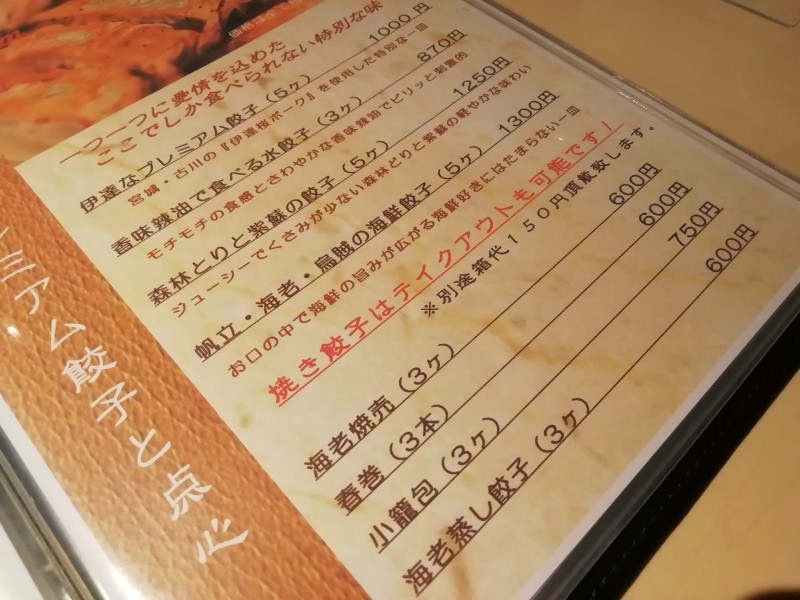 価格はすべて
一つ一つに愛情を込めた
ここでしか食べられない特別な味
伊達なプレミアム餃子(5ヶ) 1000円
宮城・古川の『伊達桜ポーク』を使用した特別な一皿
香味辣油で食べる水餃子(3ヶ) 870円
モチモチの食感とさわやかな香味辣油でピリッと刺激的
森林どりと紫蘇の餃子(5ヶ) 1250円
ジューシーでくさみが少ない森林どりと紫蘇の軽やかな味わい
帆立・海老・烏賊の海鮮餃子(5ヶ) 1300円
お口の中で海鮮の旨みが広がる海鮮好きにはたまらない一皿
焼き餃子はテイクアウトも可能です!
※別途箱代150円頂戴致します。
海老焼売(3ヶ) 600円
春巻(3本) 600円
小籠包(3ヶ) 750円
海老蒸し餃子(3ヶ) 600円
ミアム餃子と点心